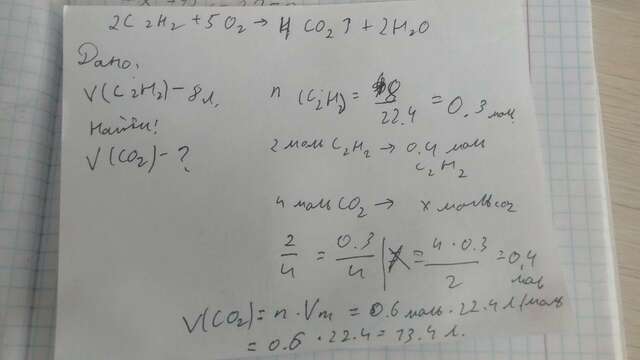 2C2H2+5O2→4CO2↑+2H2O
Дано:
V(C2H2)-8л,
Найти!
V(CO2)-?
n(C2H2)= 8/22.4 = 0.3 моль
2 моль C2H2 → 0.4 моль
C2H2
4 моль CO2 → x моль CO2
2/4 = 0.3/4 | x = 4·0.3/2 = 0,4
моль
V(CO2)=n·Vm = 0.6 моль·22.4 л/моль
= 0.6·22.4=13.4 л.